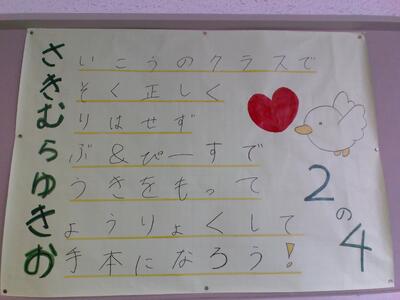 さいこうのクラスで
きそく正しく
むりはせず
らぶ&ぴーすで
ゆうきをもって
きょうりょくして
お手本になろう!
2の4